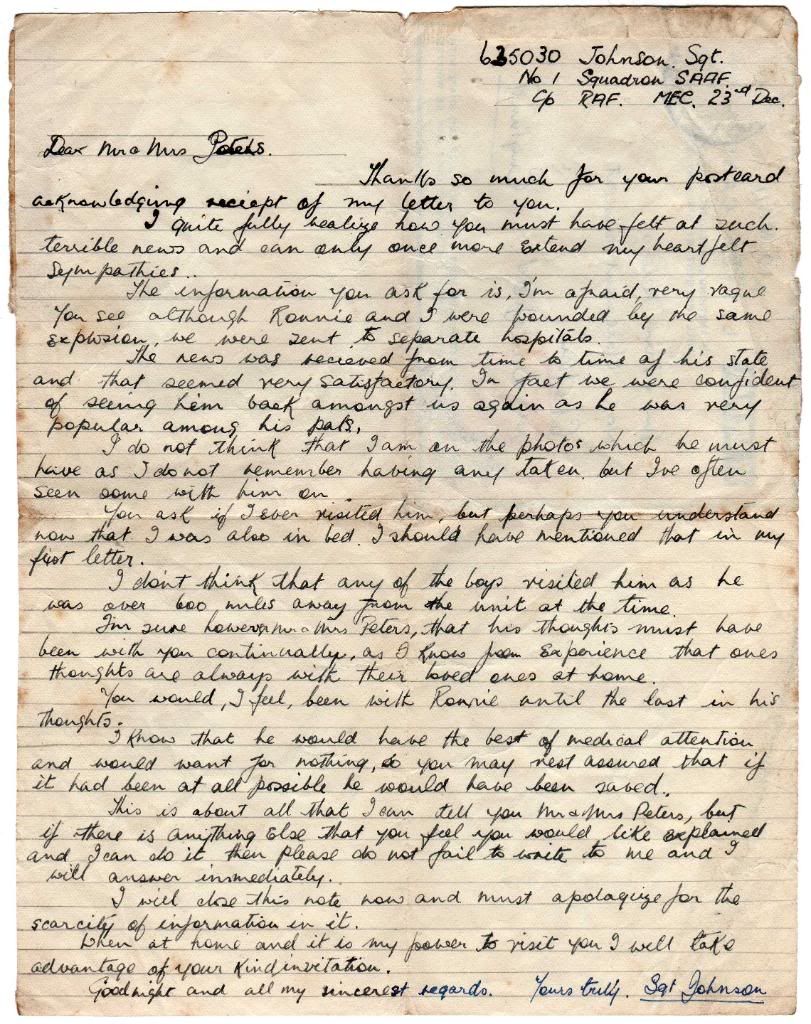 635030 Johnson. Sgt.
No 1 Squadron SAAF.
C/o RAF. MEC. 23rd Dec.
Dear Mr & Mrs Peters.
Thanks so much for your postcard
acknowledging reciept of my letter to you.
I quite fully realize how you must have felt at such
terrible news and can only once more extend my heartfelt
sympathies..
The information you ask for is, I'm afraid, very vague
You see although Ronnie and I were wounded by the same
explosion, we were sent to separate hospitals.
The news was recieved from time to time of his state
and that seemed very satisfactory. In fact we were confident
of seeing him back amongst us again as he was very
popular among his pals.
I do not think that I am on the photos which he must
have as I do not remember having any taken. but I've often
seen some with him on.
You ask if I ever visited him, but perhaps you understand
now that I was also in bed. I should have mentioned that in my
first letter.
I don't think that any of the boys visited him as he
was over 600 miles away from the unit at the time.
I'm sure however Mr & Mrs Peters, that his thoughts must have
been with you continually, as I know from experience that ones
thoughts are always with their loved ones at home.
You would, I feel, been with Ronnie until the last in his
thoughts.
I know that he would have the best of medical attention
and would want for nothing, so you may rest assured that if
it had been at all possible he would have been saved.
This is about all that I can tell you Mr & Mrs Peters, but
if there is anything else that you feel you would like explained
and I can do it then please do not fail to write to me and I
will answer immediately.
I will close this note now and must apologize for the
scarcity of information in it.
When at home and it is my power to visit you I will take
advantage of your kind invitation.
Goodnight and all my sincerest regards. Yours truly. Sgt Johnson